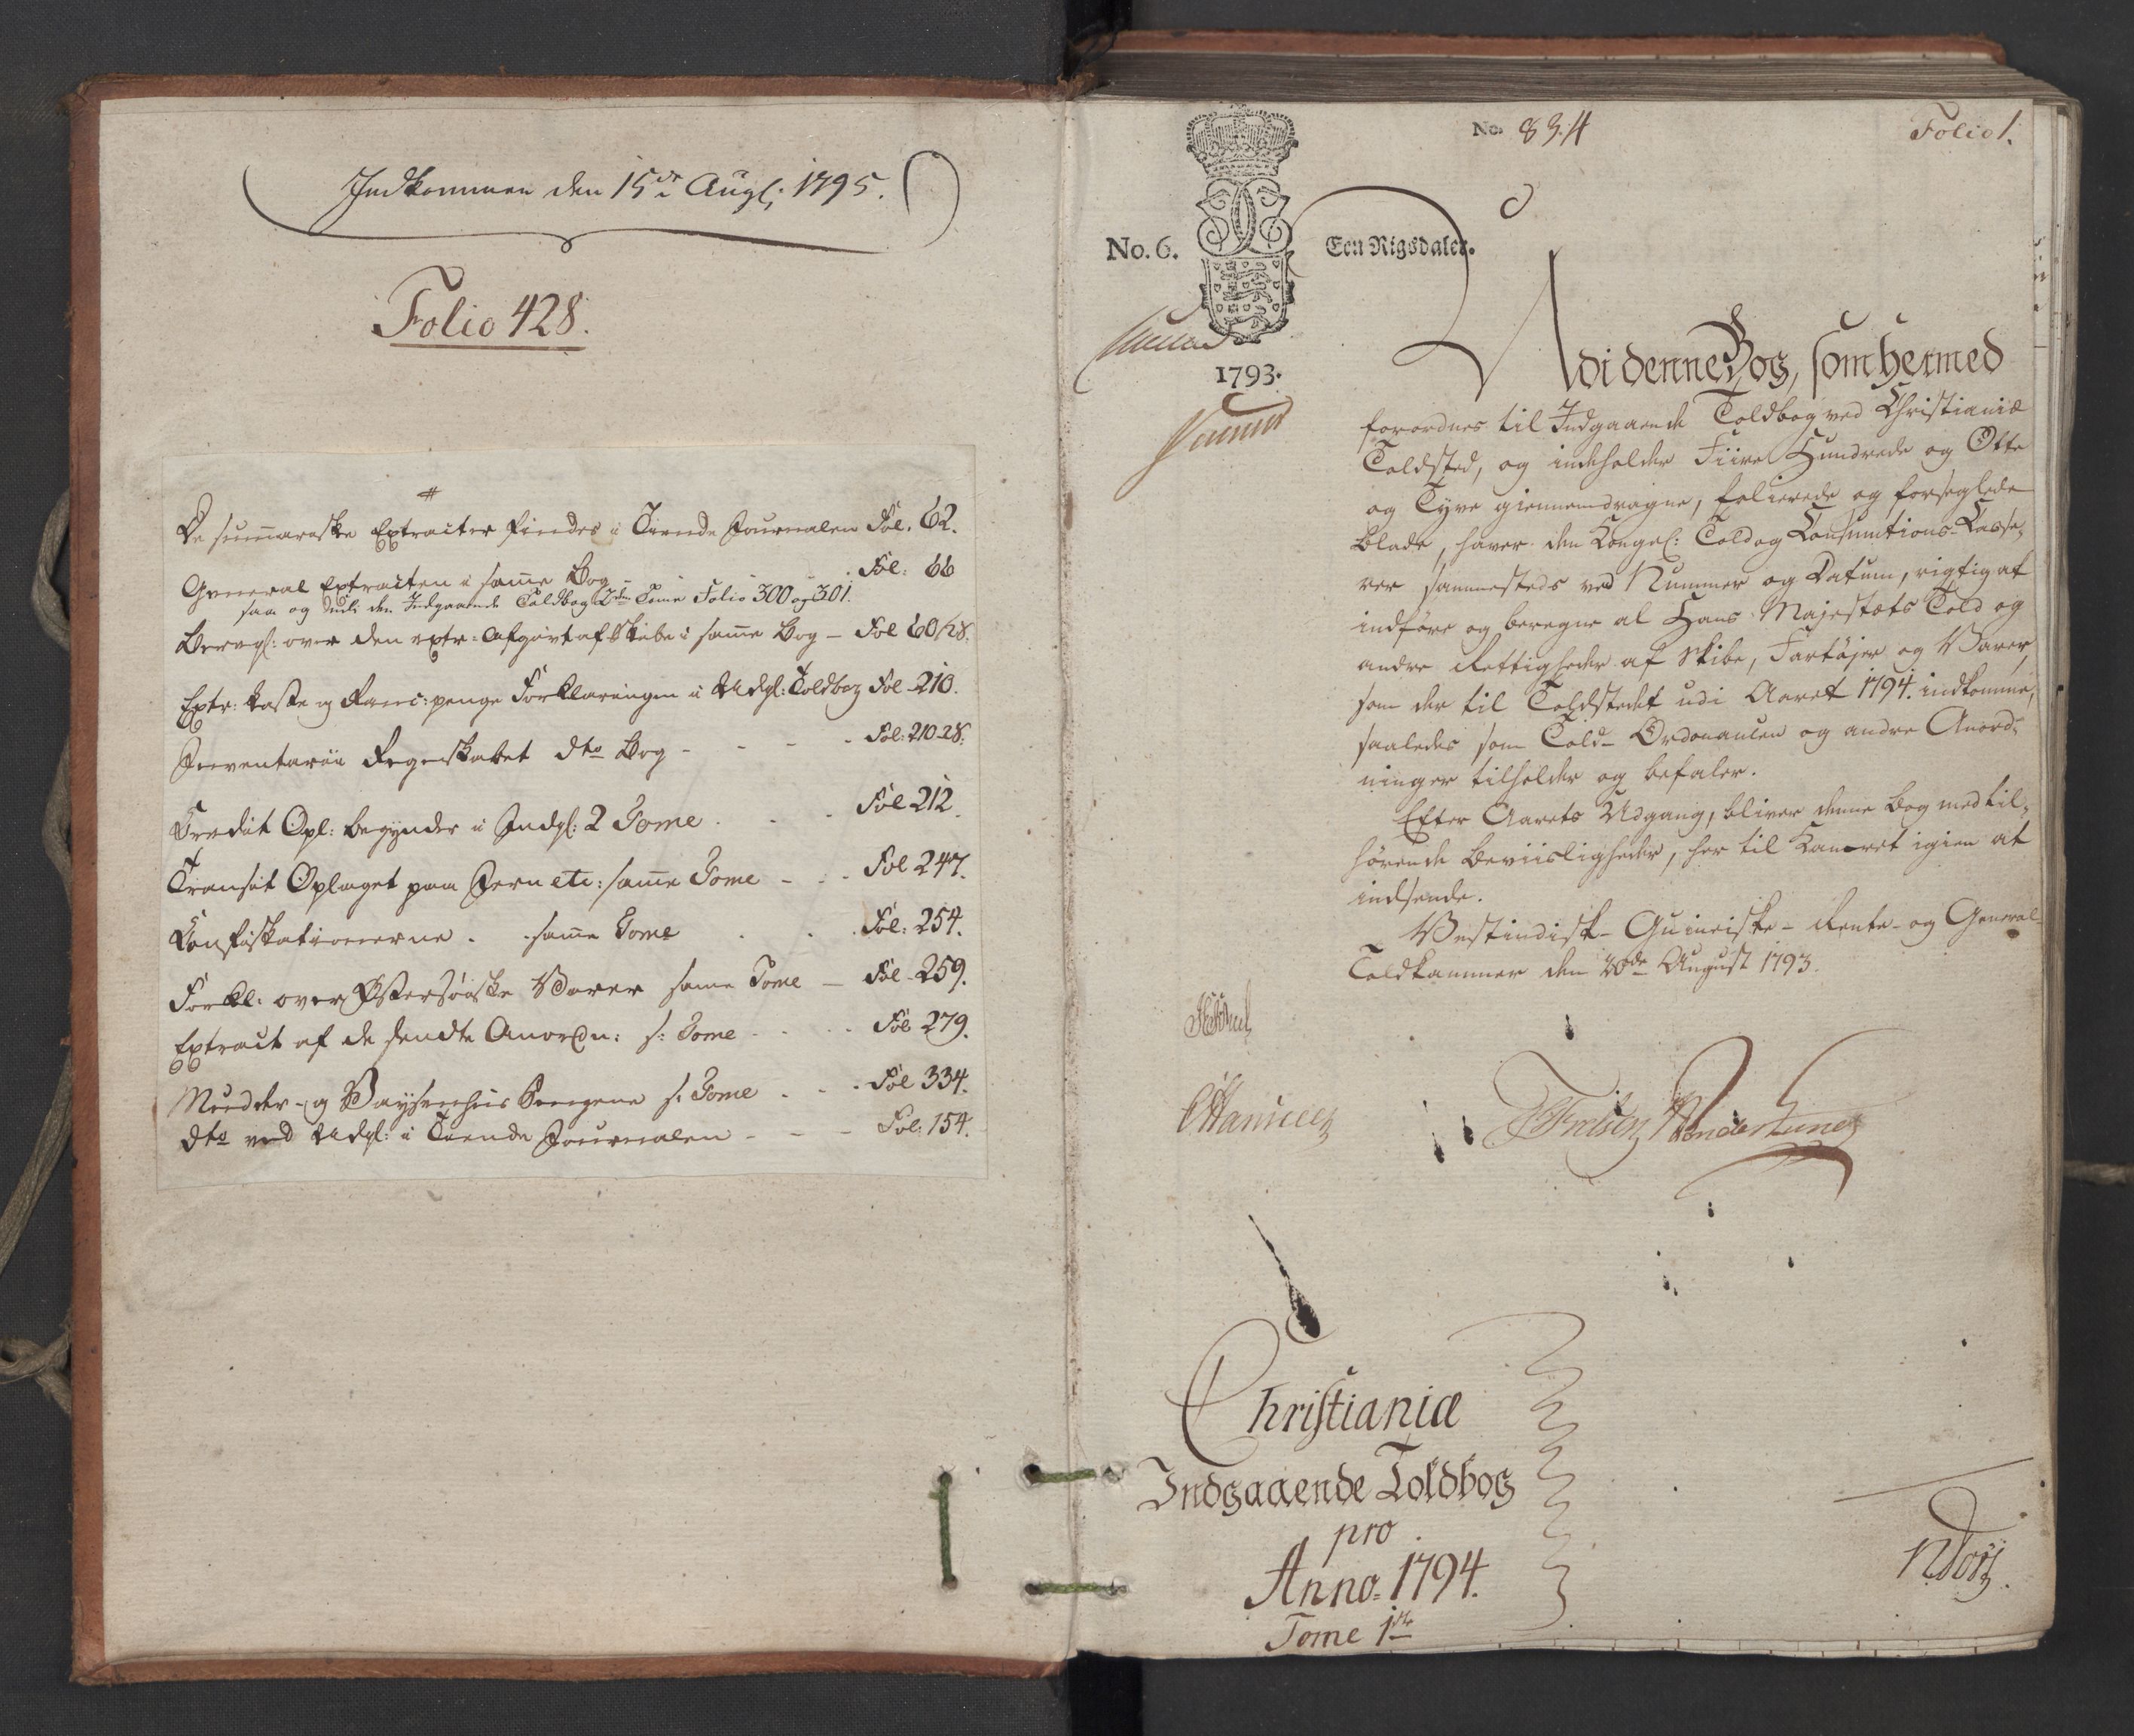 Indkommen den 15de Augl; 1795.
Folio 428.
#
De sum̄ariske Extracter findes i Tiende Journalen Fol. 62.
General Extracten i sam̄e Bog Fol: 66
saa og udi den Indgaaende Toldbog 2den Tome Folio 300 og 301.
Beregl: over den extr: Afgivt af Skibe i sam̄e Bog – Fol 60/28.
Extr: Laste og Franc: penge Forklaringen i Udgl: Toldbog Fol 210.
Inventarii Regnskabet dto Bog - - - Fol: 210-28:
Credit Opl: begynder i Indgl: 2 Tome . . . Fol 212.
Transit Oplaget paa Jern etc: sam̄e Tome - - . Fol 247.
Confiskationerne . . sam̄e Tome . . . Fol: 254.
Forkl: over Østersøiske Varer sam̄e Tome – Fol 259.
Extract af de sendte Anordn: s: Tome - . . . Fol 279.
Mudder- og Vaysenhus Pengene s: Tome . . . Fol 334.
dto ved Udgl: i Tiende Journalen - - – Fol: 154.
No. 834
Folio 1.
No. 6.
Een Rigsdaler.
1793.
Udi denne Bog, som hermed
forordnes til Indgaaende Toldbog ved Christianiæ
Toldsted, og indeholder Fiire Hundrede og Otte
og Tyve giennemdragne, folierede og forseglede
Blade, haver den Kongel: Told og Consumtions-Casse-
rer sammesteds ved Nummer og Datum, rigtig at
indføre og beregne al Hans Majestæts Told og
andre Rettigheder af Skibe, Fartøjer og Varer,
som der til Toldstedet udi Aaret 1794. indkomme,
saaledes som Told- Ordonancen og andre Anord-
ninger tilholder og befaler.
Efter Aarets Udgang, bliver denne Bog med til-
hørende Beviisligheder, her til Kamret igien at
indsende.
Vestindisk- Guineiske- Rente- og General-
Toldkammer den 20de August 1793.
Christianiæ
Indgaaende Toldbog
pro
Anno. 1794.
Tome 1ste